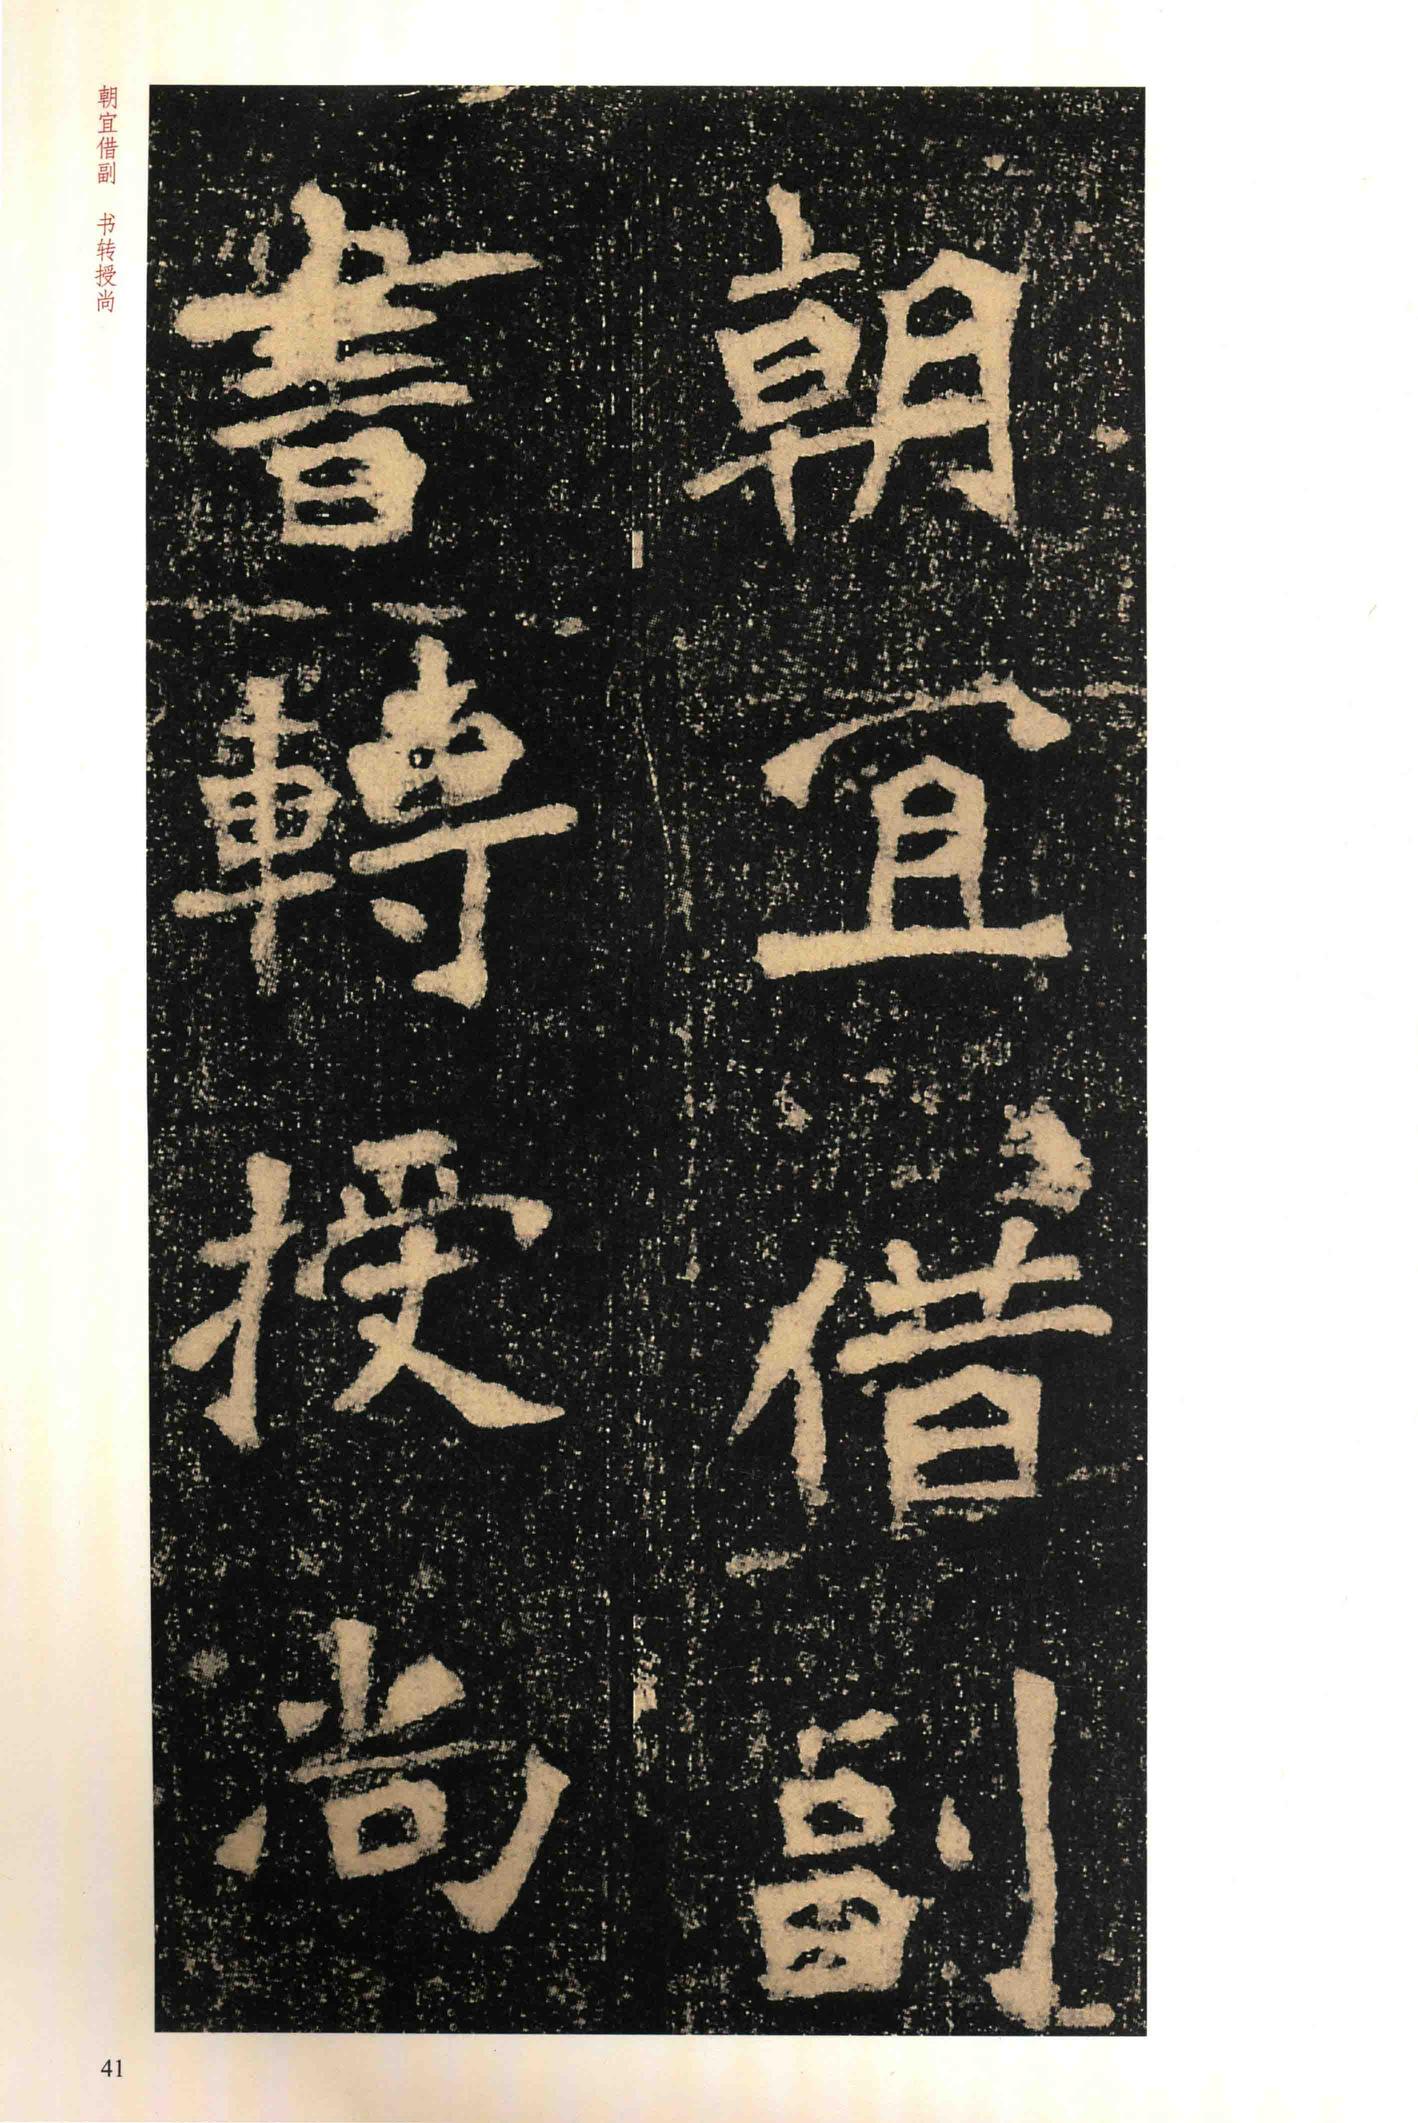 朝宜借副
書轉授尚
朝宜借副　书转授尚
41